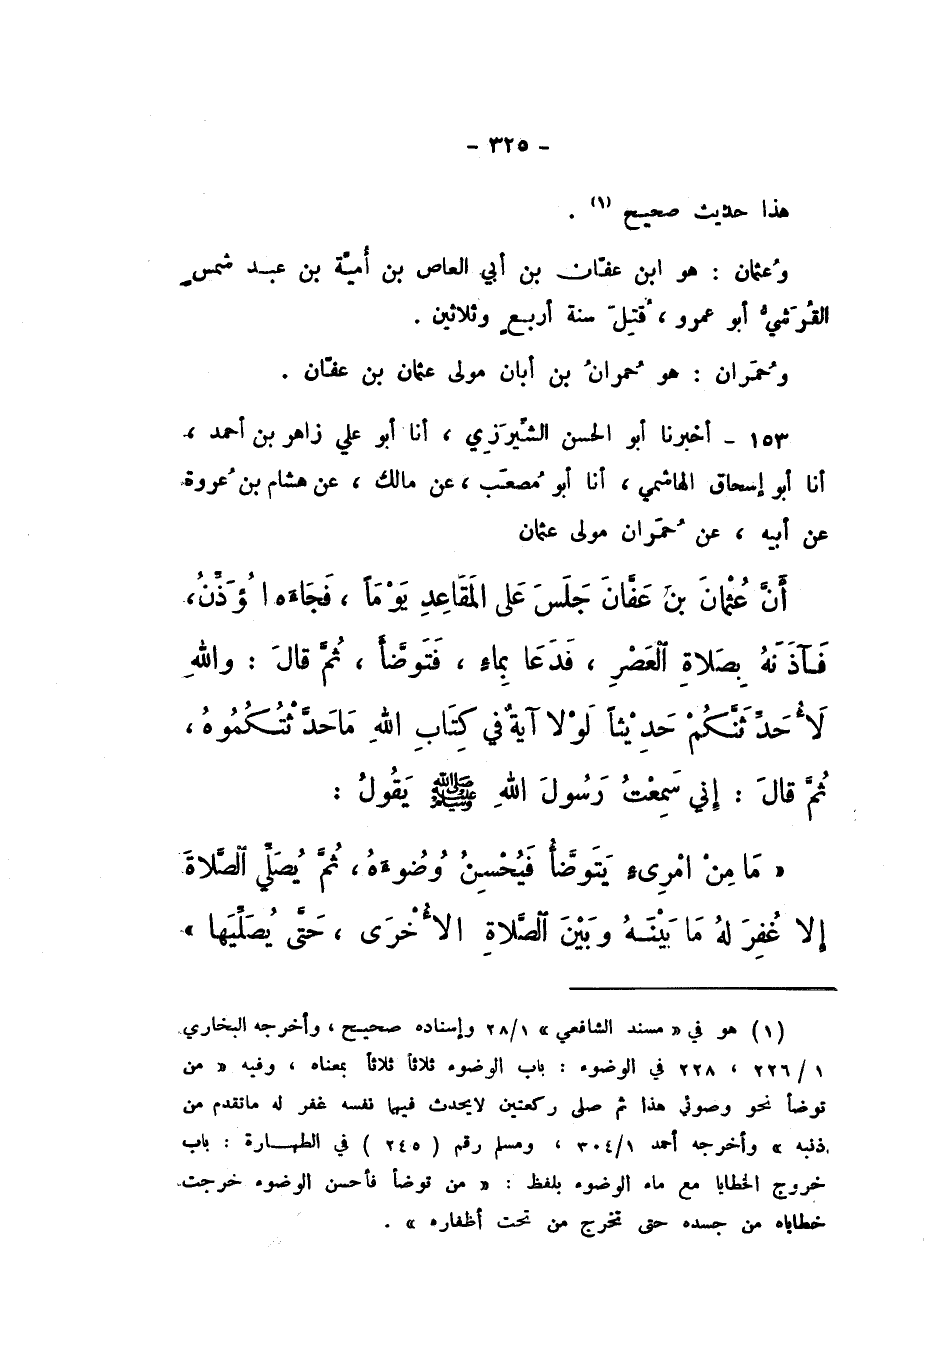 - ٣٢٥ -
هذا حديث صحيح (١) .
وعُثمان : هو ابن عفّان بن أبي العاص بن أُميّة بن عبد شمس
القُرَشيُّ أبو عمرو ، قُتِلَ سنة أربعٍ وثلاثين .
وحُمَران : هو حُمرانُ بن أبان مولى عثمان بن عفّان .
١٥٣ - أخبرنا أبو الحسن الشِّيرَزِي ، أنا أبو علي زاهر بن أحمد ،
أنا أبو إسحاق الهاشمي ، أنا أبو مُصعَب ، عن مالك ، عن هشام بن عُروة
عن أبيه ، عن حُمَران مولى عثمان
أَنَّ عُثْمانَ بنَ عَفَّانَ جَلَسَ عَلى المَقَاعِدِ يَوْمَاً ، فَجَاءَه المُؤَذِّنُ ،
فَآذَنَهُ بِصَلاةِ العَصْرِ ، فَدَعَا بِماءٍ ، فَتَوضَّأَ ، ثُمَّ قالَ : واللهِ
لَأُحَدِّثَنَّكُمْ حَدِيْثاً لَوْلا آيةٌ في كِتَابِ اللهِ مَاحَدَّثْتُكُمُوهُ ،
ثُمَّ قالَ : إِني سَمِعْتُ رَسُولَ اللهِ ﷺ يَقُولُ :
« مَا مِنْ امْرِىءٍ يَتَوضَّأُ فَيُحْسِنُ وُضُوءَهُ ، ثُمَّ يُصَلِّي الصَّلاةَ
إِلا غُفِرَ لهُ مَا بَيْنَهُ وبَيْنَ الصَّلاةِ الأُخْرَى ، حَتَّى يُصَلِّيَها »
(١) هو في « مسند الشافعي » ٢٨/١ وإسناده صحيح ، وأخرجه البخاري
٢٢٦/١ ، ٢٢٨ في الوضوء : باب الوضوء ثلاثاً ثلاثاً بمعناه ، وفيه « من
توضأ نحو وضوئي هذا ثم صلى ركعتين لايحدث فيهما نفسه غفر له ماتقدم من
ذنبه » وأخرجه أحمد ٣٠٤/١ ، ومسلم رقم ( ٢٤٥ ) في الطهارة : باب
خروج الخطايا مع ماء الوضوء بلفظ : « من توضأ فأحسن الوضوء خرجت
خطاياه من جسده حتى تخرج من تحت أظفاره » .